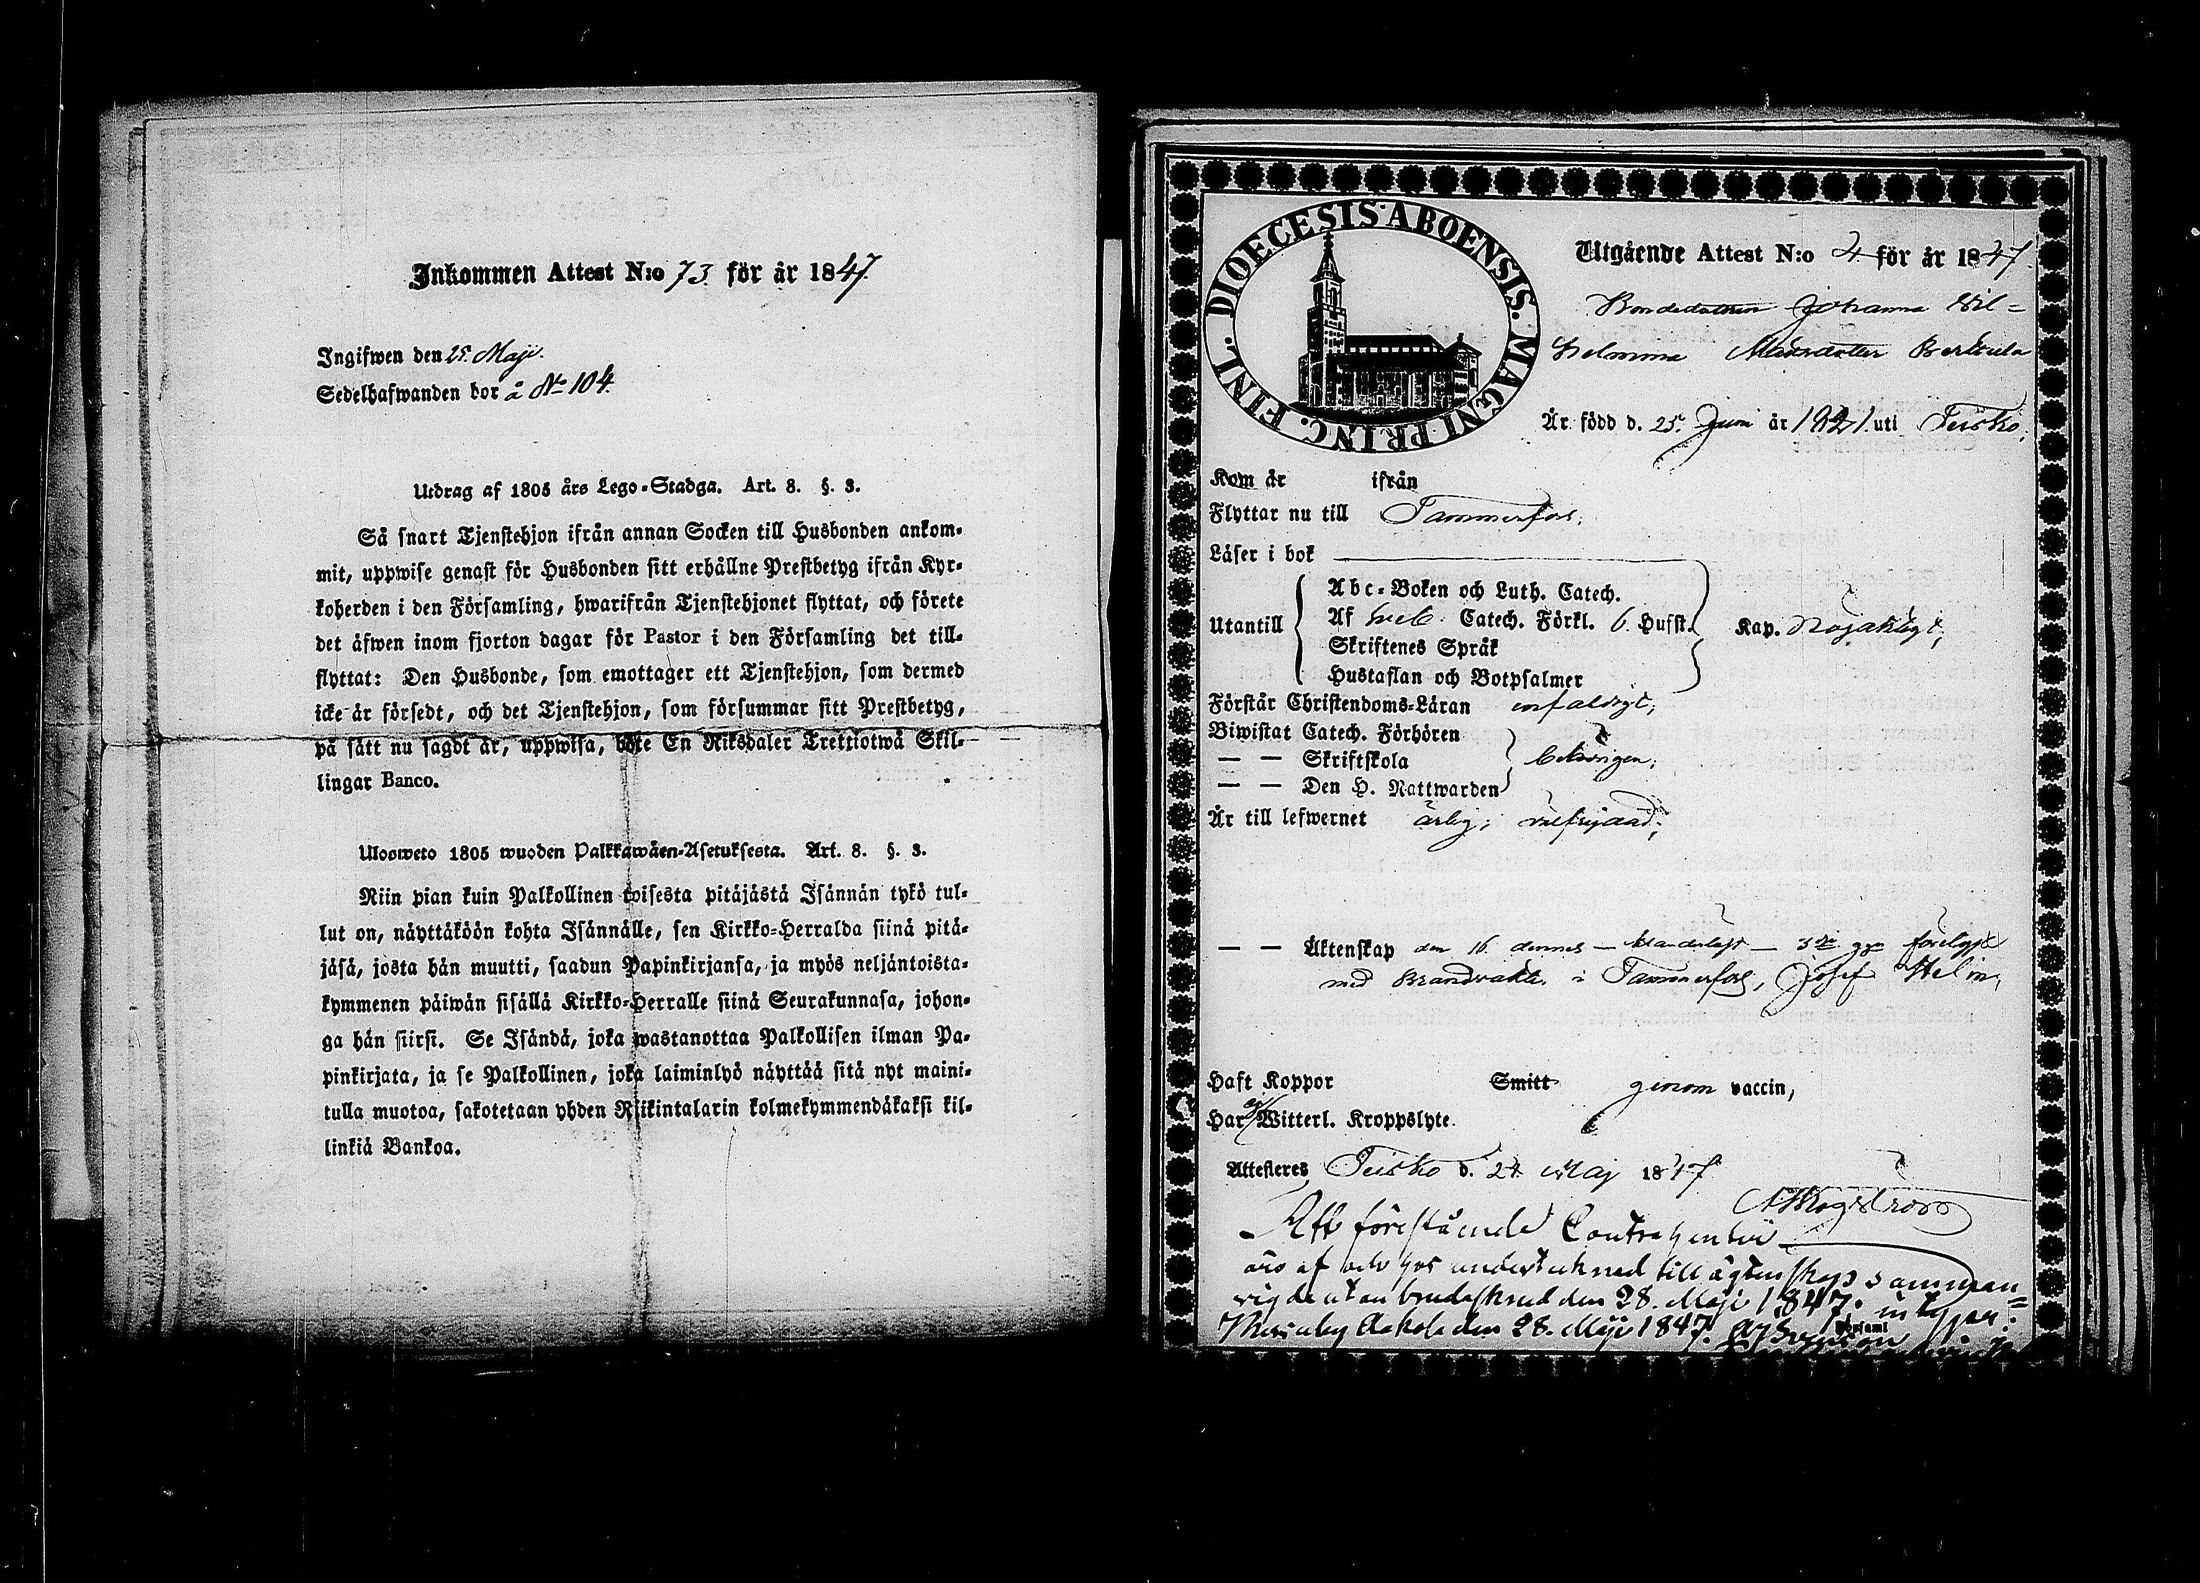 Inkommen Attest N:o 73. för år 1847.
Ingifwen den 25. Maji.
Sedelhafwanden bor å No 104.
Utdrag af 1805 års Lego-Stadga. Art. 8. §. 3.
Så snart Tjenstehjon ifrån annan Socken till Husbonden ankom-
mit, uppwise genast för Husbonden sitt erhållne Prestbetyg ifrån Kyr-
koherden i den Församling, hwarifrån Tjenstehjonet flyttat, och förete
det äfwen inom fjorton dagar för Pastor i den Församling det till-
flyttat: Den Husbonde, som emottager ett Tjenstehjon, som dermed
icke är försedt, och det Tjenstehjon, som försummar sitt Prestbetyg,
på sätt nu sagdt är, uppwisa, böte En Riksdaler Trettiotwå Skil-
lingar Banco.
Ulosweto 1805 wuoden Palkkawäen-Asetuksesta. Art. 8. §. 3.
Niin pian kuin Palkollinen toisesta pitäjästä Isännän tykö tul-
lut on, näyttäköön kohta Isännälle, sen Kirkko-Herralda siinä pitä-
jäsä, josta hän muutti, saadun Papinkirjansa, ja myös neljäntoista-
kymmenen päiwän sisällä Kirkko-Herralle siinä Seurakunnasa, johon-
ga hän siirsi. Se Isändä, joka wastanottaa Palkollisen ilman Pa-
pinkirjata, ja se Palkollinen, joka laiminlyö näyttää sitä nyt maini-
tulla muotoa, sakotetaan yhden Riikintalarin kolmekymmendäkaksi kil-
linkiä Bankoa.
DIOECESIS ABOENSIS. MAGNI PRINC. FINL.
Utgående Attest N:o 24 för år 1847.
Bondedottren Johanna Wil-
helmina Mattsdotter Berttula
Är född d. 25. Juni år 1821. uti Teisko,
Kom år ifrån
Flyttar nu till Tammerfors,
Läser i bok
Abc-Boken och Luth. Catech.
Utantill Af Catech. Förkl. 6. Hufst. Kap. Nöjaktigt,
Skriftenes Språk
Hustaflan och Botpsalmer
Förstår Christendoms-Läran enfaldigt,
Biwistat Catech. Förhören
— — Skriftskola behörigen,
— — Den H. Nattwarden
Är till lefwernet ärlig, wälfrejdad,
— — Äktenskap den 16. dennes 3dje ggn
med Brandvakten i Tammerfors, Josef Helin,
Haft Koppor Smitt genom vaccin,
Har ej Witterl. Kroppslyte.
Attesteres Teisko d. 24 Maj 1847
Att förestående Contrahenter
äro af undertecknad till ägtenskap samman-
vigde utan brudeskrud den 28. Maji 1847.
den 28. Maji 1847.